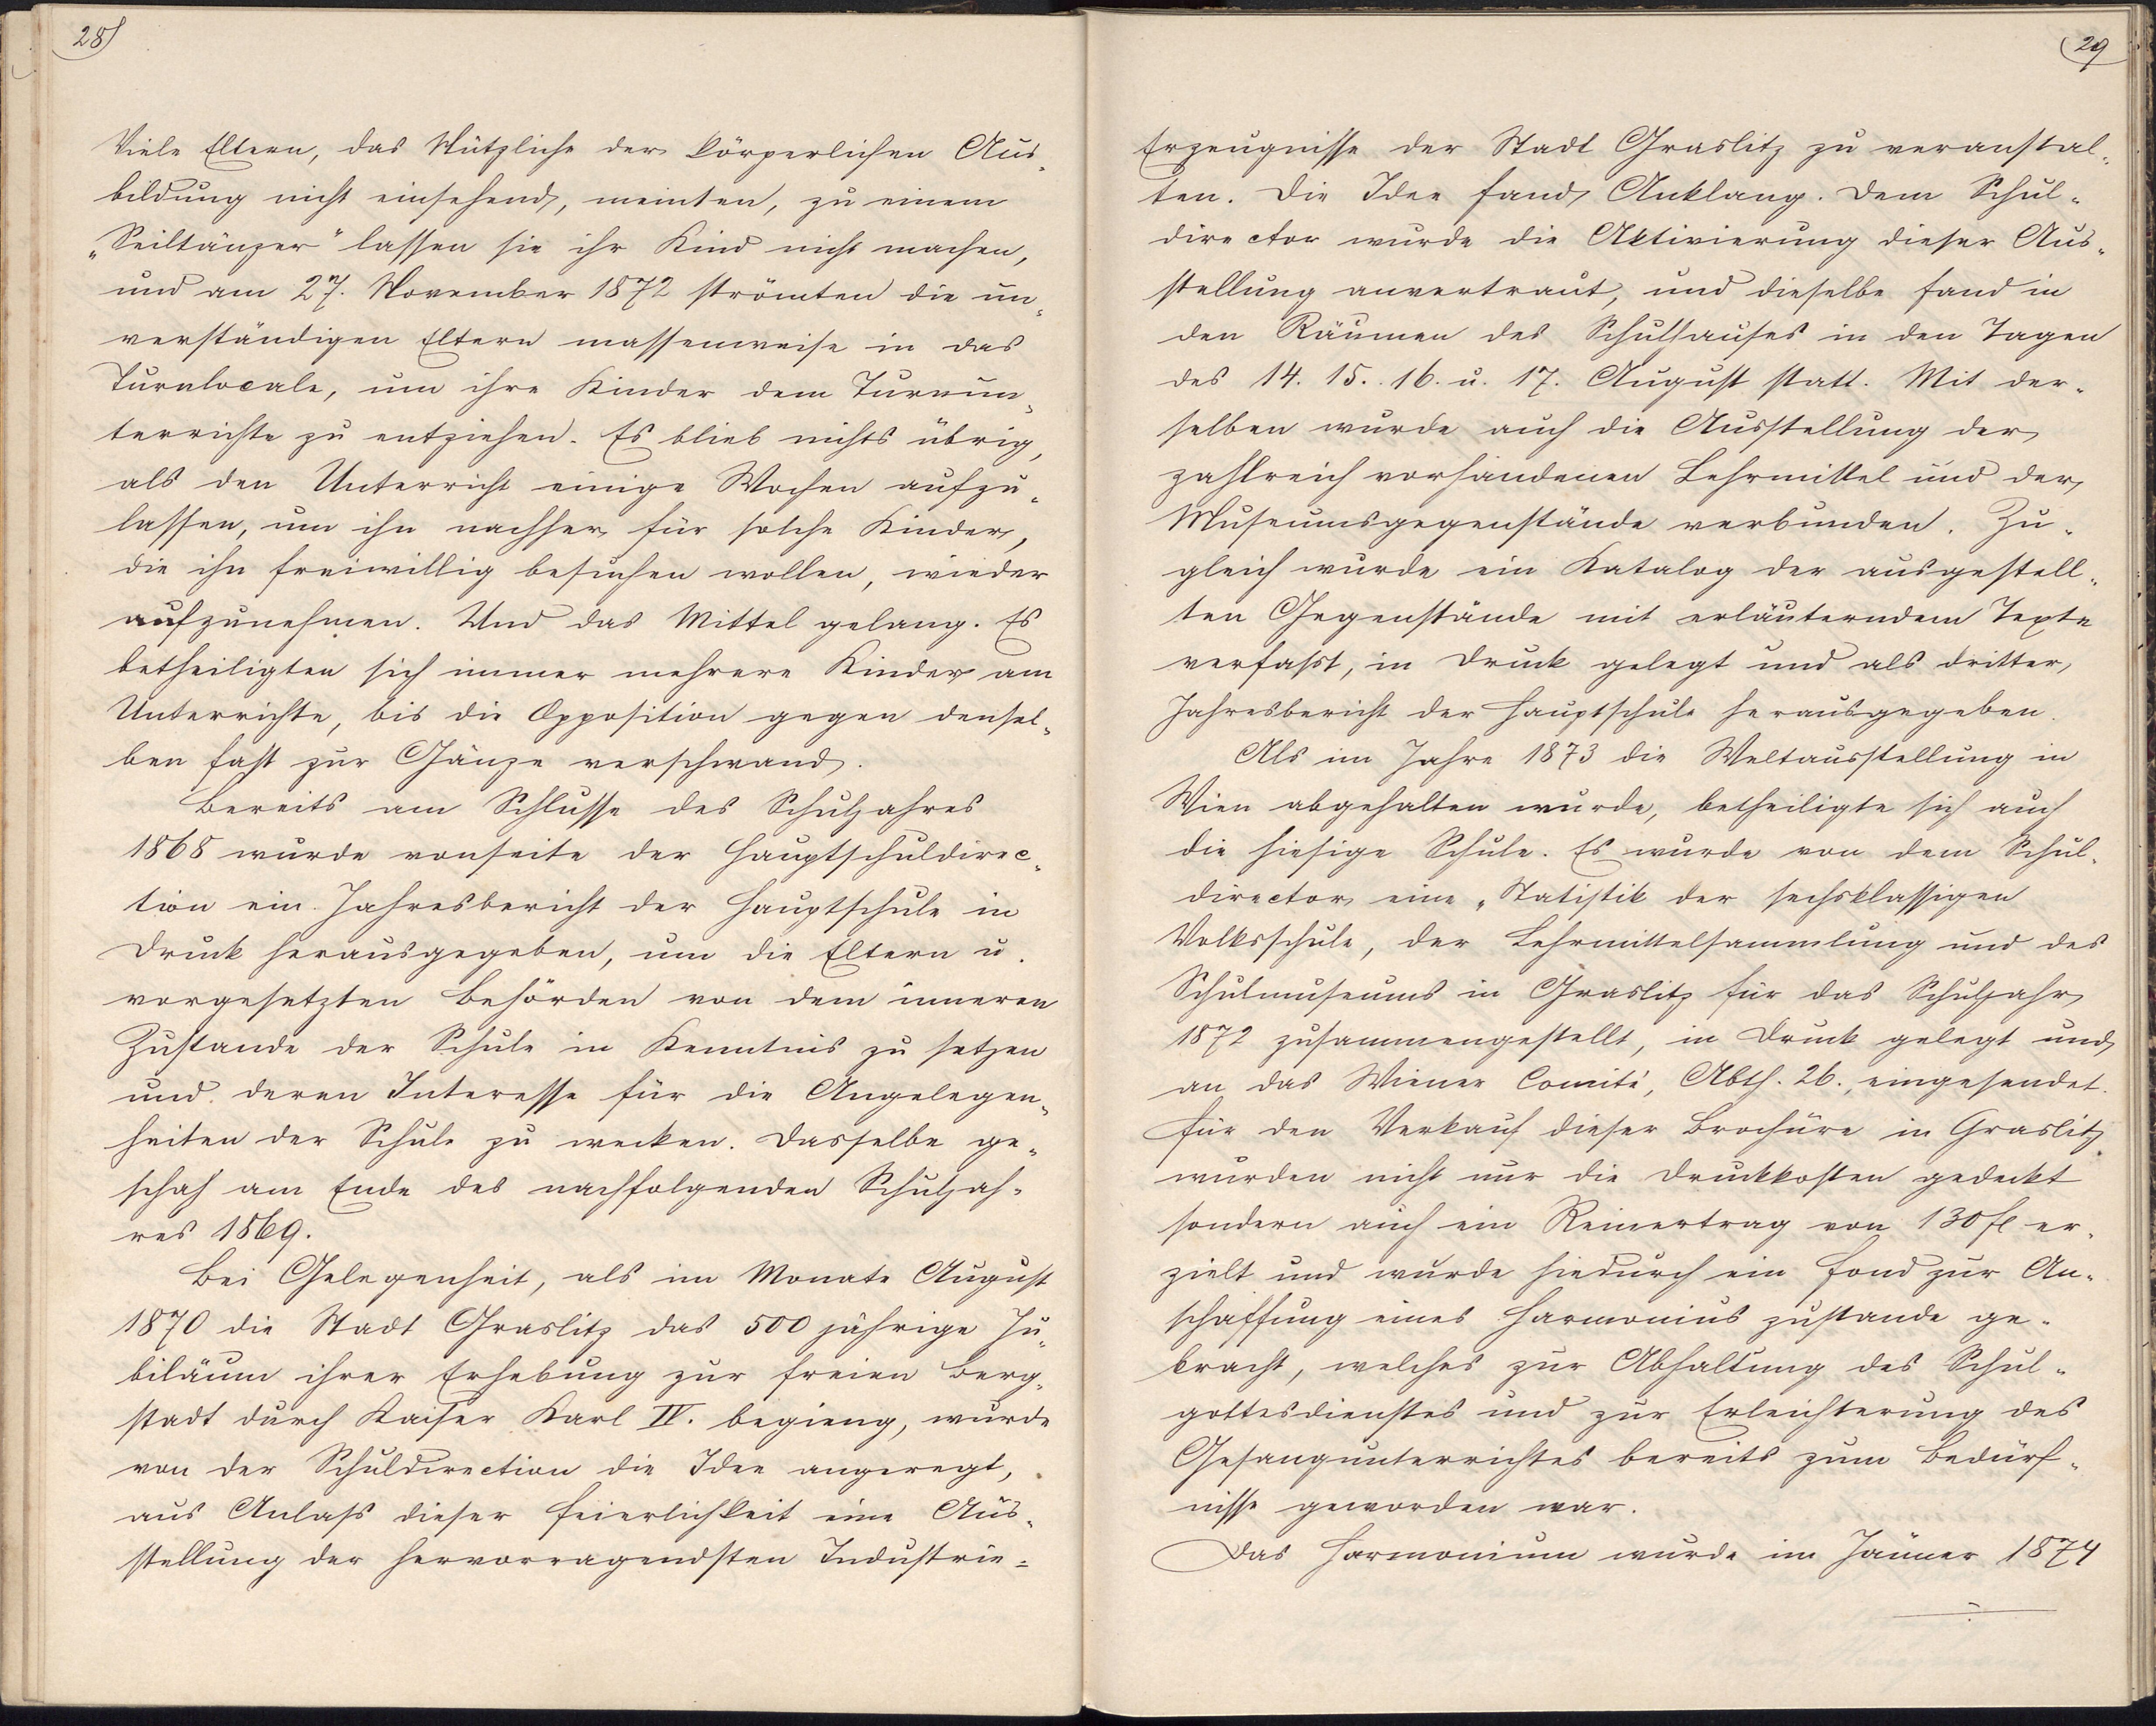 28
Viele Eltern, das Nützliche der körperlichen Aus-
bildung nicht einsehend, meinten, zu einem
„Seiltänzer“ lassen sie ihr Kind nicht machen,
und am 27. November 1872 strömten die un-
verständigen Eltern massenweise in das
Turnlocale, um ihre Kinder dem Turnun-
terrichte zu entziehen. Es blieb nichts übrig,
als den Unterricht einige Wochen aufzu-
lassen, um ihn nachher für solche Kinder,
die ihn freiwillig besuchen wollen, wieder
aufzunehmen. Und das Mittel gelang. Es
betheiligten sich immer mehrere Kinder am
Unterrichte, bis die Opposition gegen densel-
ben fast zur Gänze verschwand.
Bereits am Schlusse des Schuljahres
1868 wurde vonseite der Hauptschuldirec-
tion ein Jahresbericht der Hauptschule in
Druck herausgegeben, um die Eltern u.
vorgesetzten Behörden von dem inneren
Zustande der Schule in Kenntnis zu setzen
und deren Interesse für die Angelegen-
heiten der Schule zu wecken. Dasselbe ge-
schah am Ende des nachfolgenden Schuljah-
res 1869.
Bei Gelegenheit, als im Monate August
1870 die Stadt Graslitz das 500 jährige Ju-
biläum ihrer Erhebung zur freien Berg-
stadt durch Kaiser Karl IV. begieng, wurde
von der Schuldirection die Idee angeregt,
aus Anlass dieser Feierlichkeit eine Aus-
stellung der hervorragendsten Industrie-
29
Erzeugnisse der Stadt Graslitz zu veranstal-
ten. Die Idee fand Anklang. Dem Schul-
director wurde die Aktivierung dieser Aus-
stellung anvertraut, und dieselbe fand in
den Räumen des Schulhauses in den Tagen
des 14. 15. 16. u. 17. August statt. Mit der-
selben wurde auch die Ausstellung der
zahlreich vorhandenen Lehrmittel und der
Museumsgegenstände verbunden. Zu-
gleich wurde ein Katalog der ausgestell-
ten Gegenstände mit erläuterndem Texte
verfasst, in Druck gelegt und als dritter
Jahresbericht der Hauptschule herausgegeben.
Als im Jahre 1873 die Weltausstellung in
Wien abgehalten wurde, betheiligte sich auch
die hiesige Schule. Es wurde von dem Schul-
director eine „Statistik der sechsklassigen
Volksschule, der Lehrmittelsammlung und des
Schulmuseums in Graslitz für das Schuljahr
1872 zusammengestellt, in Druck gelegt und
an das Wiener Comité, Abth. 26., eingesendet.
Für den Verkauf dieser Brochüre in Graslitz
wurden nicht nur die Druckkosten gedeckt
sondern auch ein Reinertrag von 130 fl er-
zielt und wurde hiedurch ein Fond zur An-
schaffung eines Harmoniums zustande ge-
bracht, welches zur Abhaltung des Schul-
gottesdienstes und zur Erleichterung des
Gesangunterrichtes bereits zum Bedürf-
nisse geworden war.
Das Harmonium wurde im Jänner 1874